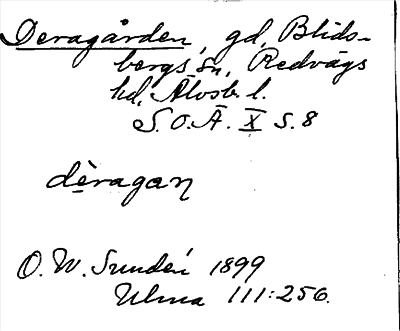 Deragården, gd, Blids-
bergs sn, Redvägs
hd, Älvsb. l.
S.O.Ä. X s. 8
dèragaɳ
O. W. Sundén 1899
Ulma 111:256.